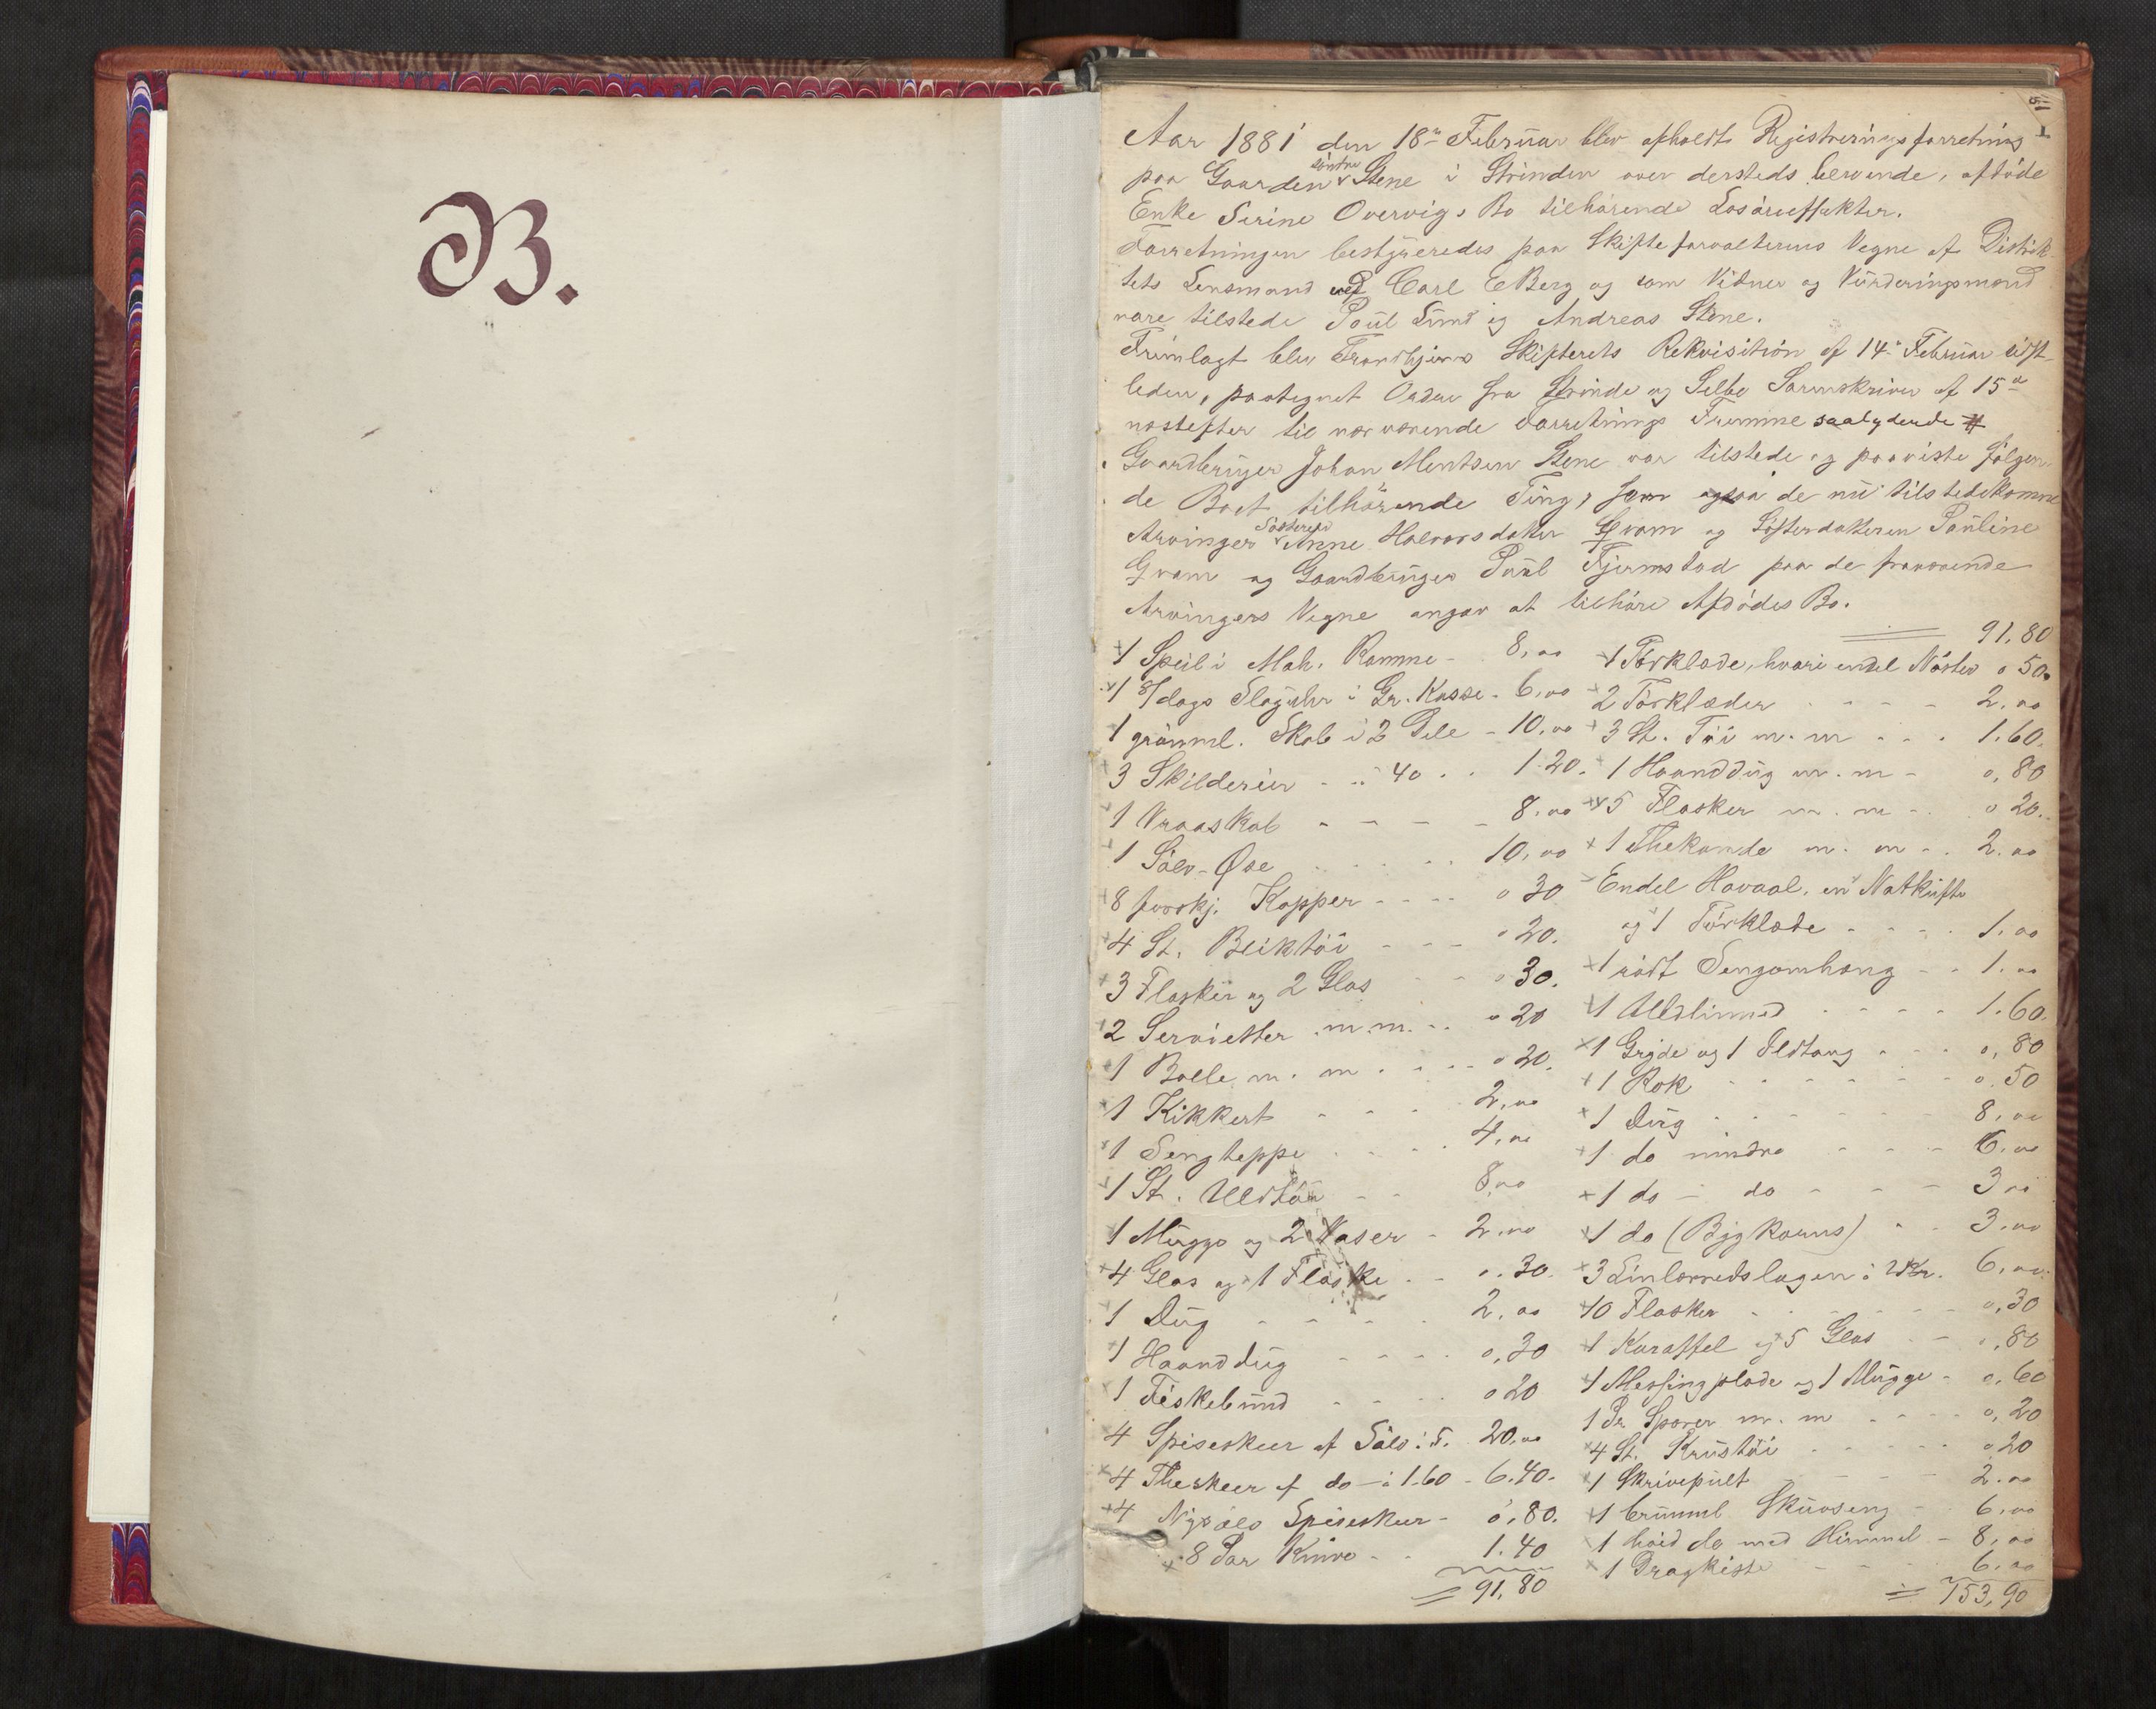 B.
Aar 1881 den 18de Februar blev afholdt Registreringsforretning
paa Gaarden søndre Stene i Strinden over dersteds beroende, afdøde
Enke Serine Overvigs Bo tilhørende Løsøreeffekter.
Forretningen bestyredes paa Skifteforvalterens Vegne af Distrik-
tets Lensmand ved Carl E Berg og som Vidner og Vurderingsmænd
vare tilstede Poul Lund og Andreas Stene.
Fremlagt blev Trondhjems Skifterets Rekvisition af 14de Februar sidst-
leden, paategnet Ordre fra Strinde og Selbo Sorenskriver af 15de
næstefter til nærværende Forretnings Fremme saalydende #
Gaardbruger Johan Mentsen Stene var tilstede og paaviste følgen-
de Boet tilhørende Ting, som ogsaa de nu tilstedekomne
Arvinger Søsteren Anne Halvorsdatter Hvam og Søsterdatteren Pauline
Hvam og Gaardbruger Paul Fjermstad paa de fraværende
Arvingers Vegne angav at tilhøre Afdødes Bo.
1 Speil i Mah. Ramme - 8,00
1 8/dags Slaguhr i Gr. Kasse - 6,00
1 grønml. Skab i 2 Dele - 10,00
3 Skilderier - à 40 . . 1.20.
1 Vraaskab - - - - 8.00
1 Sølv-Øse . . . . 10,00
8 forskj. Kopper - - - - 0 30
4 St. Bliktøi - - - 0 20.
3 Flasker og 2 Glas - - 0 30.
2 Servietter m.m. . . 0 20
1 Bolle m. m . . . . 0 20.
1 Kikkert - - - - 2,00
1 Sengteppe . . . . 4,00
1 St. Uldtøi - - 8,00
1 Mugge og 2 Vaser - 2.00
4 Glas og 1 Flaske . - 0.30.
1 Dug - - - - . 2,00
1 Haanddug - - - - 0,30
1 Fiskebund - - . . 0 20
4 Spiseskeer af Sølv à 5. 20,00
4 Theskeer af do - à 1.60 - 6.40.
4 Nysølv Spiseskeer - 0,80.
8 Par Knive - . 1.40
= 91,80
91,80
1 Tørklæde, hvori endel Nøster 0 50.
2 Tørklæder . - - - 2,00
3 St. Tøi m. m . . . 1.60.
1 Haanddug m. m - 0,80
5 Flasker m. m - . 0 20.
1 Thekande m. m - . 2.00
Endel Havaal, en Nattrøie
og 1 Tørklæde - . . . 1.00
1 rødt Sengomhæng - - 1.00
1 Uldlinned . . - - 1.60.
1 Gryde og 1 Ildtang . . . 0,80
1 Rok - - - - - - 0.50
1 Dug - - - - - - 8.00
1 do mindre - - - 6.00
1 do - do - - - 3 00
1 do (Bygkorns) - - 3.00
3 Linlærredslagen à 2 Kr. 6,00
10 Flasker - - - - - 0,30
1 Karaffel og 5 Glas - - 0,80
1 Messingplade og 1 Mugge - 0,60
1 Pr Sporer m. m - - - 0,20
4 St. Krustøi - - - - 0,20
1 Skrivepult - - - 2.00
1 bruunml Skuvseng - 6.00
1 hvid do med Himmel - 8,00
1 Dragkiste - - - 6.00
= 153,90